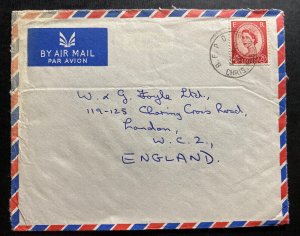 BY AIR MAIL
PAR AVION
CHRIS
W. & G. Foyle Ltd,
119-125 Charing Cross Road,
London,
W.C.2,
ENGLAND.